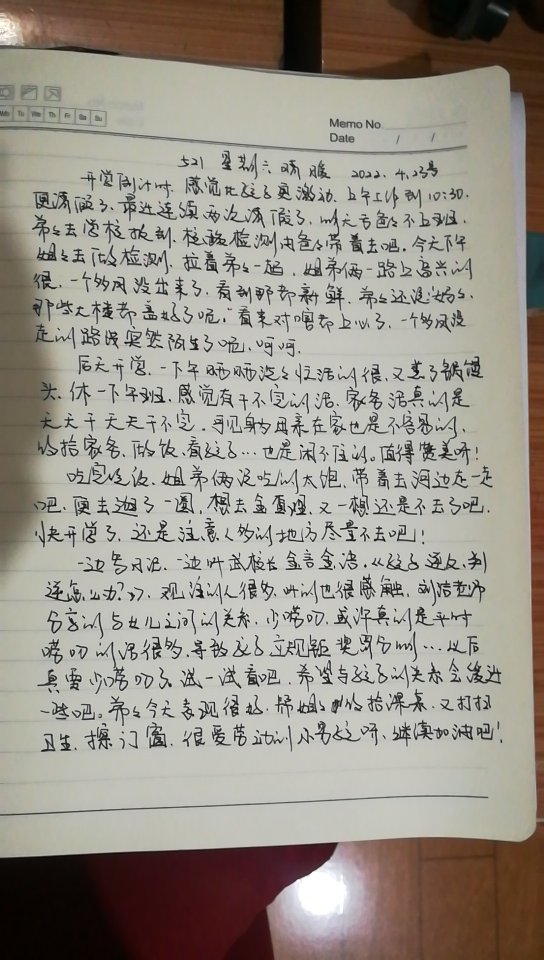 Mo Tu We Th Fr Sa Su
Memo No.
Date / /
521 星期六 晴 暖 2022.4.23号
开学倒计时,感觉比孩子更激动,上午工作到10:30,
便满假了,最近连续两次满假了,明天爸爸不上班,
弟弟去学校报到,核酸检测由爸爸带着去吧,今天下午
姐姐去做检测,拉着弟弟一起,姐弟俩一路上高兴的
很,一个多月没出来了,看到那都新鲜,弟弟还说:妈妈,
那些大楼都盖好了呢,看来对啥都上心了,一个多月没
走的路段突然陌生了呢,呵呵。
后天开学,一下午晒晒洗洗忙活的很,又蒸了锅馒
头,休一下午班,感觉有干不完的活,家务活真的是
天天干天天干不完,可见身为母亲在家也是不容易的,
收拾家务,做饭,看孩子…也是闲不住的。值得赞美呀!
吃完晚饭,姐弟俩说吃的太饱,带着去河边走一走
吧,便去逛了一圈,想去金
,又一想还是不去了吧,
快开学了,还是注意人多的地方尽量不去吧!
一边写日记,一边听武校长金言金语,从孩子逆反,判
逆怎么办?
,观注的人很多,听的也很感触,刘洁老师
分享的与女儿之间的关系,少唠叨,或许真的是平时
唠叨的话很多,导致孩子立规矩奖罚分明…以后
真要少唠叨了,试一试看吧,希望与孩子的关系会缓进
一些吧。弟弟今天表现很好,帮姐姐收拾课桌,又打扫
卫生,擦门窗,很爱劳动的小男孩呀,继续加油吧!